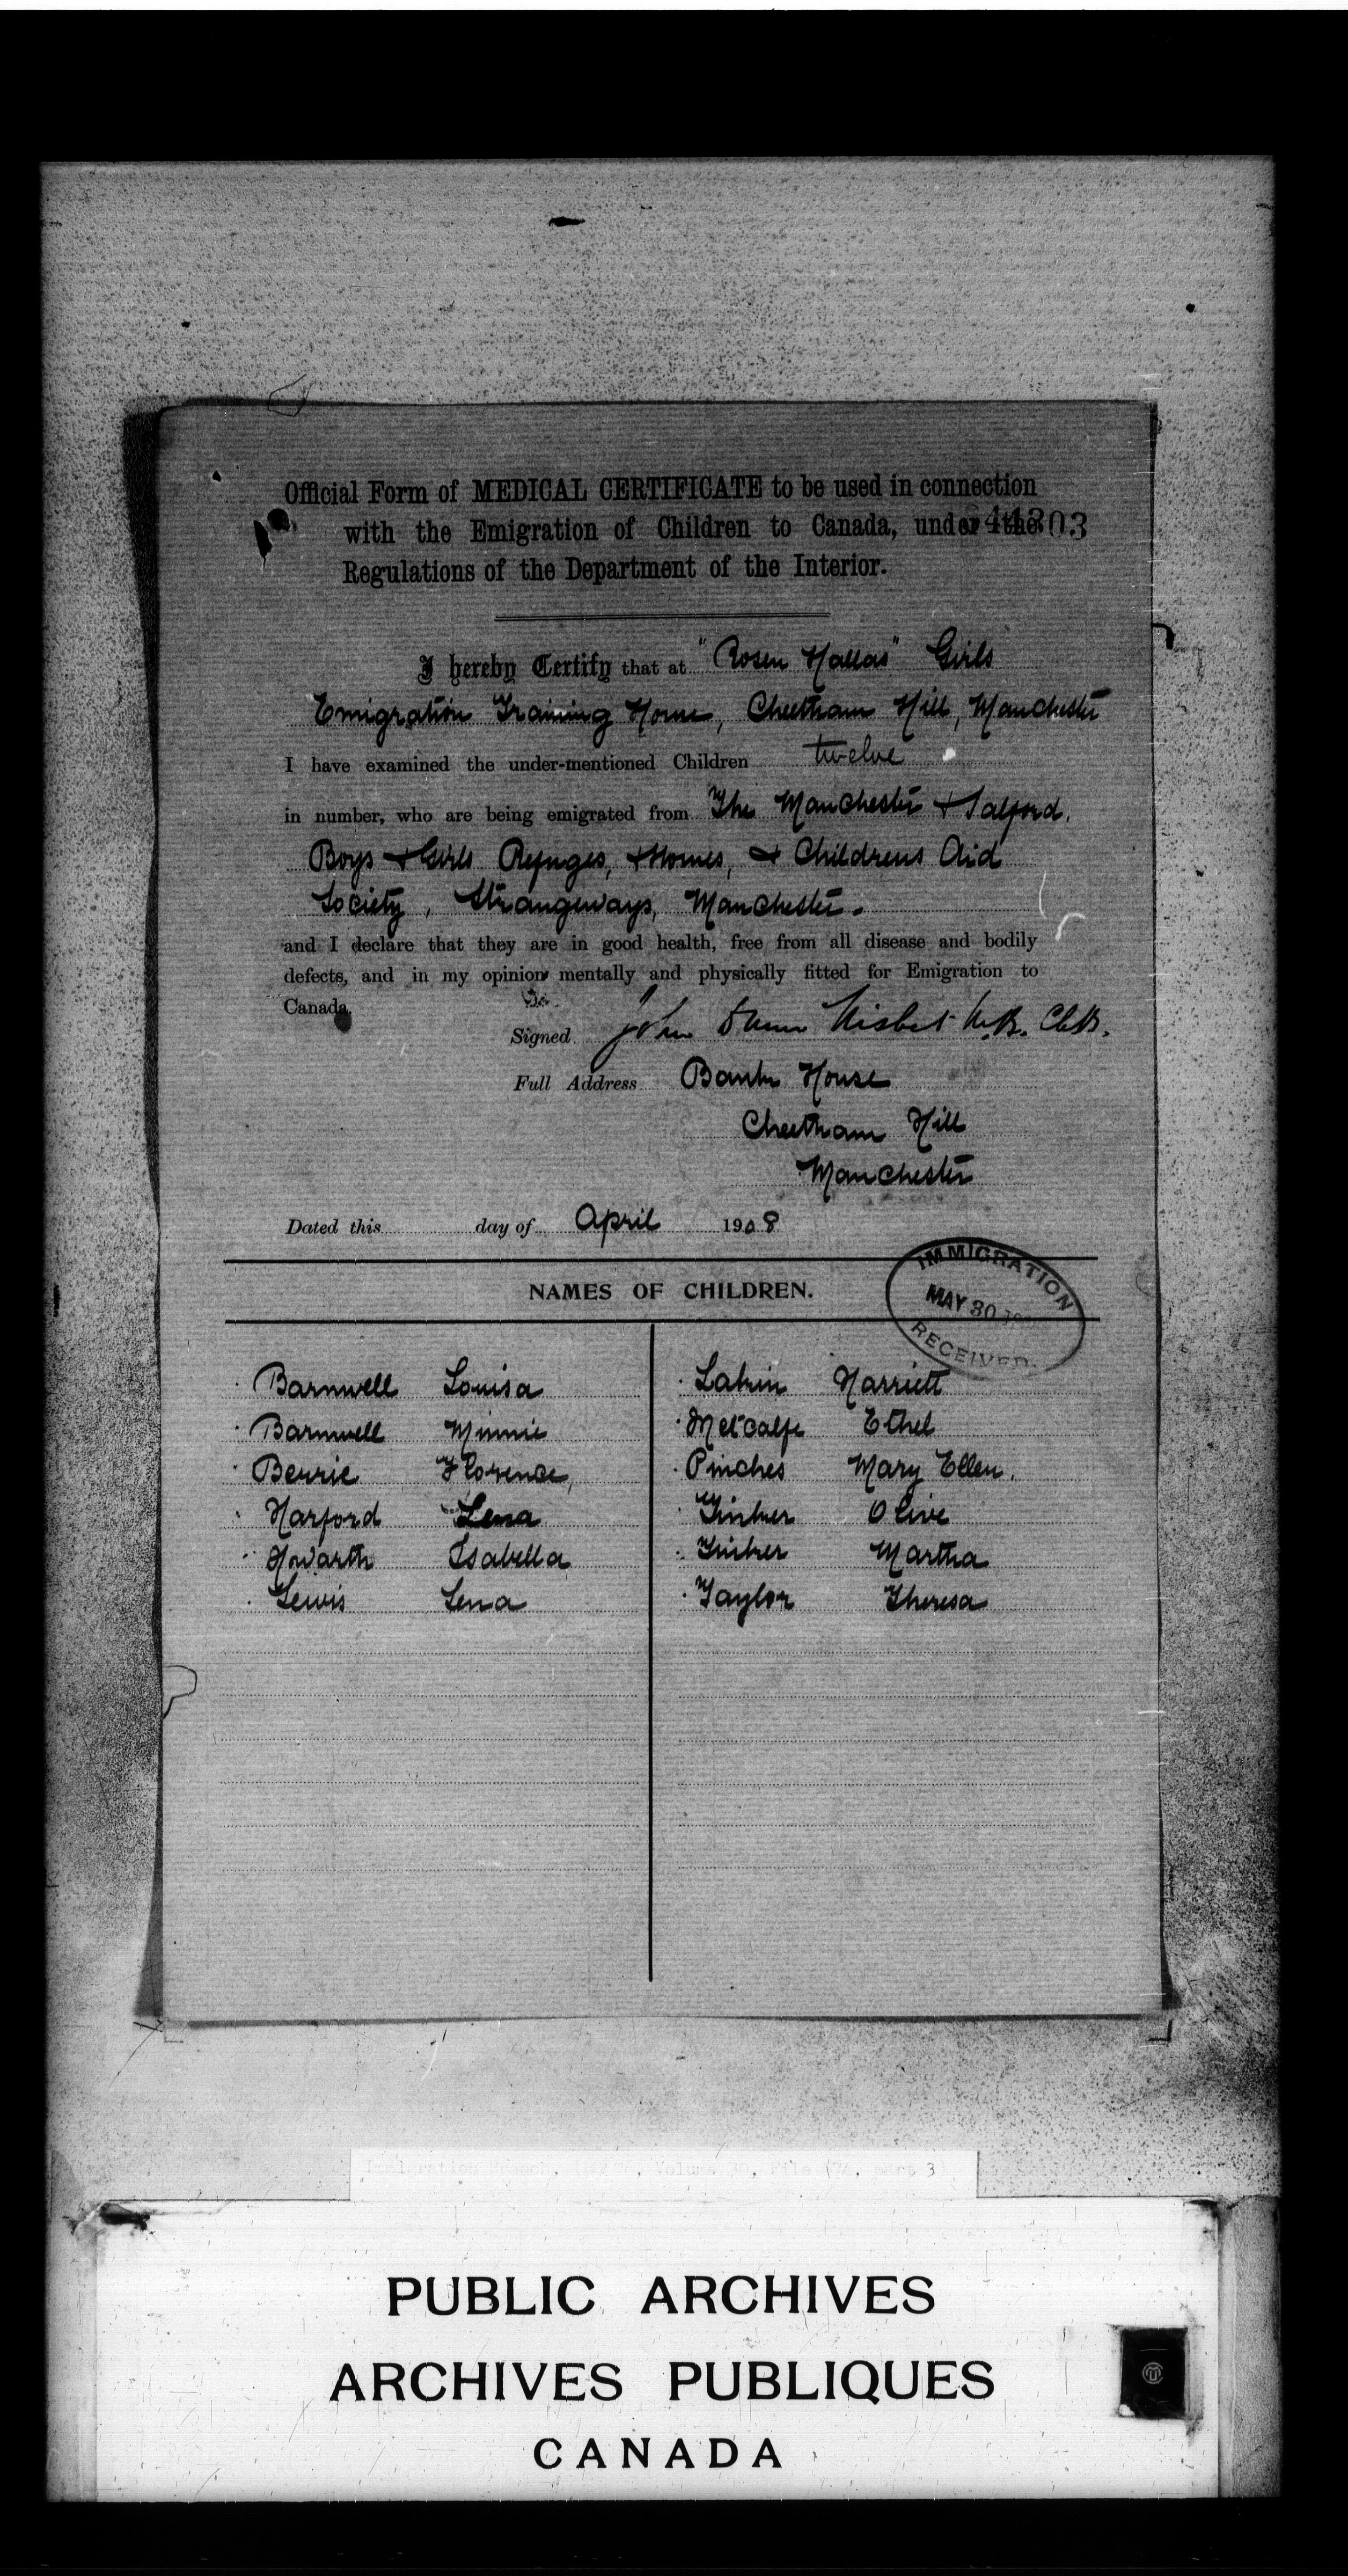 Official Form of MEDICAL CERTIFICATE to be used in connection
with the Emigration of Children to Canada, under the
Regulations of the Department of the Interior.
I hereby Certify that at "Rosen Hallas" Girls
Emigration Training Home, Cheetham Hill, Manchester
I have examined the under-mentioned Children twelve
in number, who are being emigrated from The Manchester & Salford
Boys & Girls Refuges, & Homes, & Childrens Aid
Society, Strangeways, Manchester.
and I declare that they are in good health, free from all disease and bodily
defects, and in my opinion mentally and physically fitted for Emigration to
Canada.
Signed John Nisbet M.B. Ch.B.
Full Address House
Cheetham Hill
Manchester
Dated this day of April 1908
IMMIGRATION
MAY 30
RECEIVED
NAMES OF CHILDREN.
Barnwell Louisa
Barnwell Minnie
Berrie Florence,
Harford Lena
Howarth Isabella
Lewis Lena
Harriett
Metcalfe Ethel
Pinches Mary Ellen.
Tinker Olive
Tinker Martha
Taylor Theresa
PUBLIC ARCHIVES
ARCHIVES PUBLIQUES
CANADA